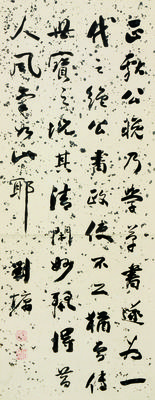 正獻公晚乃學草書遂為一
代之絕公書政使不工猶當傳
世寶之況其清閑妙麗得昔
人風氣如此耶 劉墉